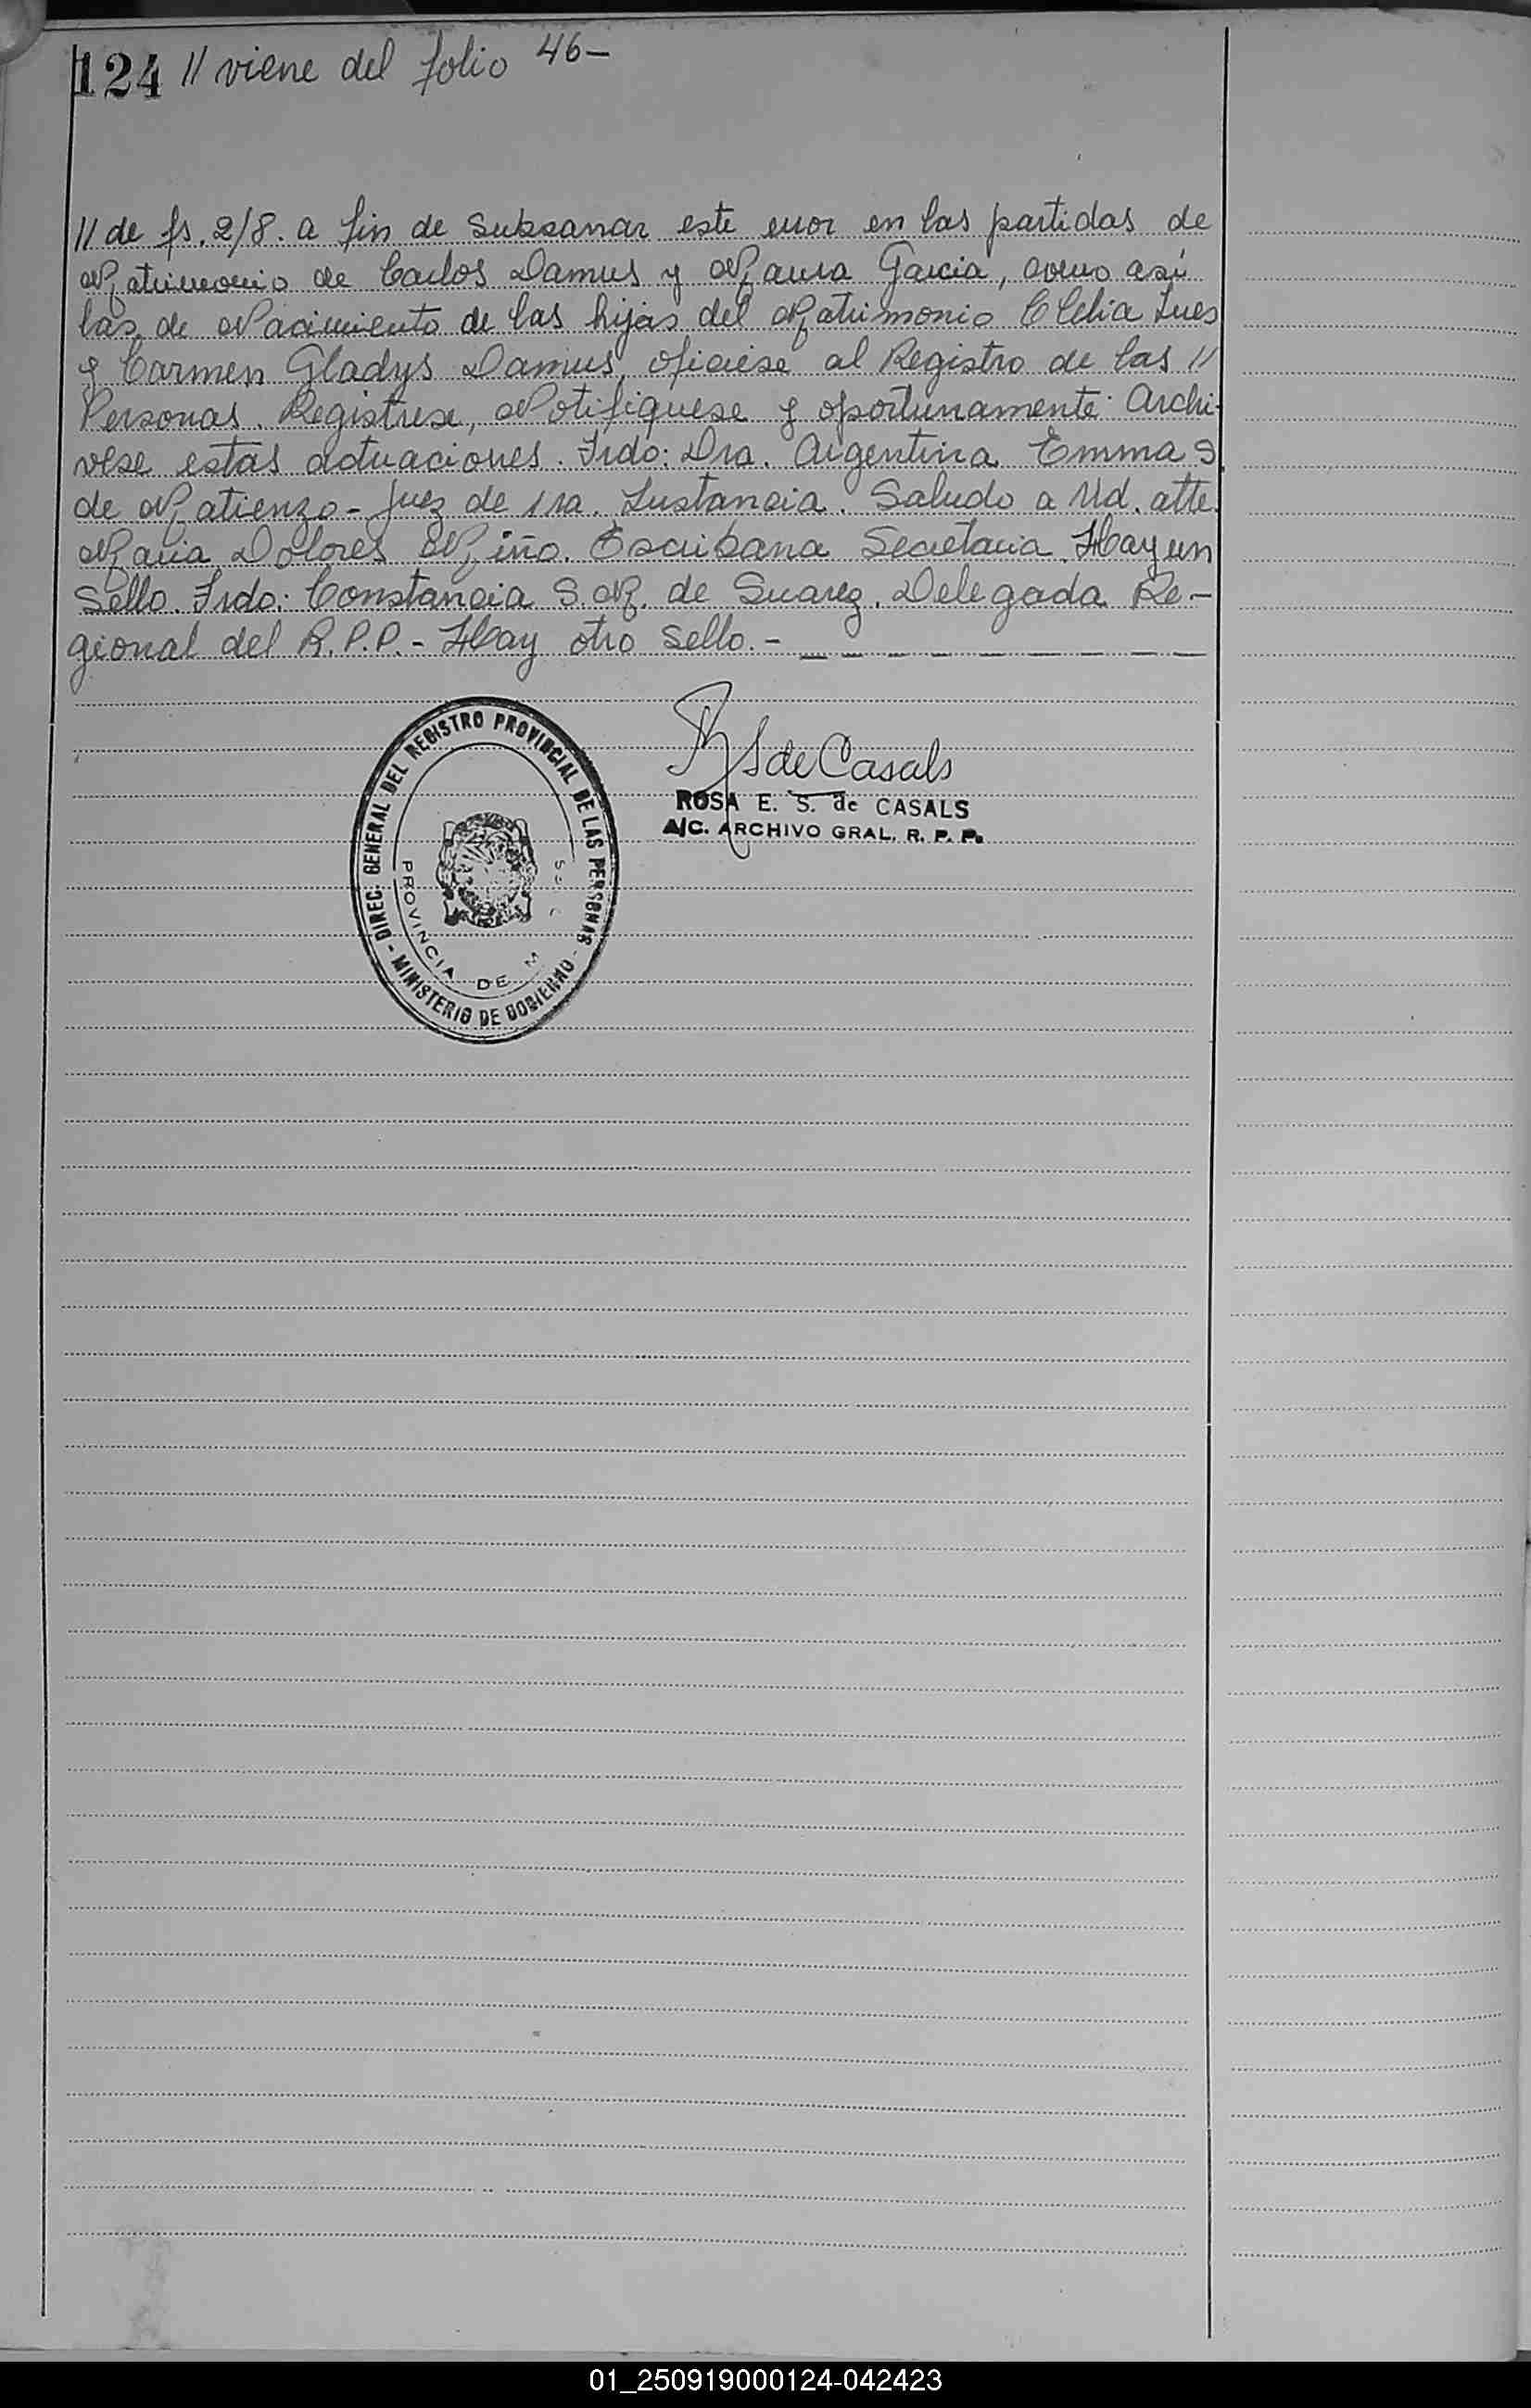 124 // viene del folio 46-
// de fs. 2/8. a fin de subsanar este error en las partidas de
Matrimonio de Carlos Damus y Maura Garcia, como así
las de Nacimiento de las hijas del Matrimonio Clelia Ines
y Carmen Gladys Damus, ofíciese al Registro de las //
Personas. Registrese, Notifiquese y oportunamente: Archi-
vese estas actuaciones. Frdo: Dra. Argentina Emma S.
de Matienzo - Juez de 1ra. Instancia. Saludo a Ud. atte.
Maria Dolores Miño. Escribana Secretaria. Hay un
Sello. Frdo: Constancia S. M. de Suarez. Delegada Re-
gional del R.P.P. - Hay otro sello. -
DIREC. GENERAL DEL REGISTRO PROVINCIAL DE LAS PERSONAS
- MINISTERIO DE GOBIERNO -
PROVINCIA DE M
S de Casals
ROSA E. S. de CASALS
A/C. ARCHIVO GRAL. R. P. P.
01_250919000124-042423